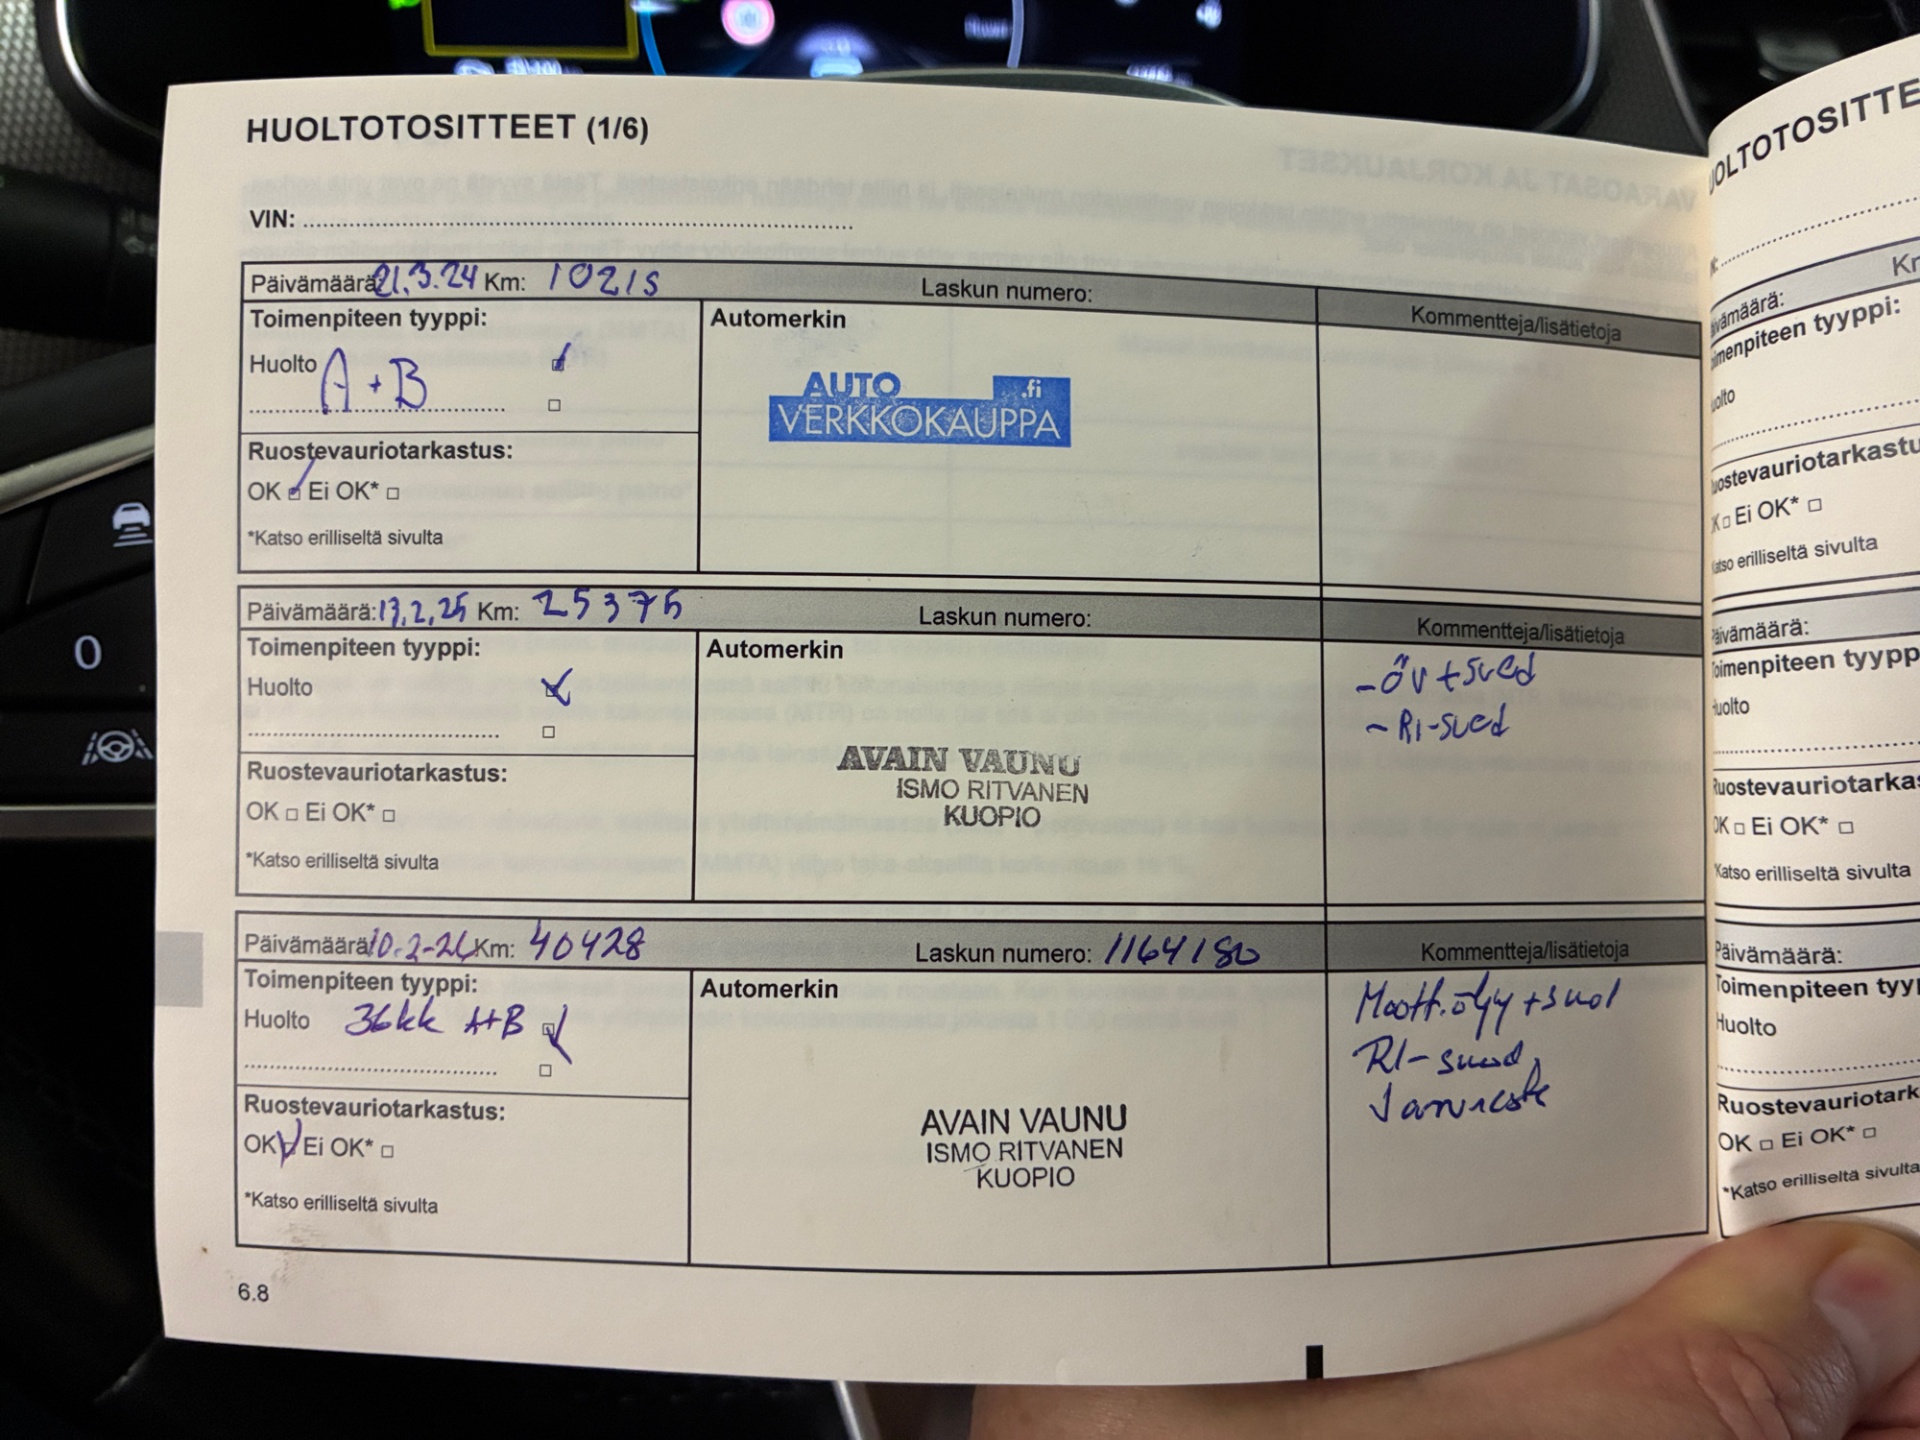 HUOLTOTOSITTEET (1/6)
VIN:
Päivämäärä: 21.3.24 Km: 10215 Laskun numero:
Toimenpiteen tyyppi:
Automerkin
Kommentteja/lisätietoja
Huolto A+B
AUTO .fi
VERKKOKAUPPA
Ruostevauriotarkastus:
OK Ei OK*
*Katso erilliseltä sivulta
Päivämäärä: 13.2.25 Km: 25375 Laskun numero:
Kommentteja/lisätietoja
Toimenpiteen tyyppi:
Automerkin
Huolto
-öv+sued
-RI-sued
AVAIN VAUNU
ISMO RITVANEN
KUOPIO
Ruostevauriotarkastus:
OK Ei OK*
*Katso erilliseltä sivulta
Päivämäärä 10.2-26 Km: 40428 Laskun numero: 1164180
Kommentteja/lisätietoja
Toimenpiteen tyyppi:
Automerkin
Huolto 36kk A+B
Moott.öljy+suod
RI-suod,
Jarrueste
AVAIN VAUNU
ISMO RITVANEN
KUOPIO
Ruostevauriotarkastus:
OK Ei OK*
*Katso erilliseltä sivulta
6.8
OLTOTOSITTE
Km
äivämäärä:
oimenpiteen tyyppi:
uolto
uostevauriotarkastu
K Ei OK*
Katso erilliseltä sivulta
Päivämäärä:
Toimenpiteen tyypp
Huolto
Ruostevauriotarkas
OK Ei OK*
*Katso erilliseltä sivulta
Päivämäärä:
Toimenpiteen tyyp
Huolto
Ruostevauriotark
OK Ei OK*
*Katso erilliseltä sivulta
0